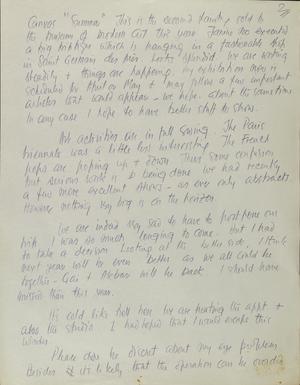 Canvas "Summer" This is the second painting sold to
the Museum of Modern Art this year. Jannis too executed
a big which is hanging in a fashionable shop
in Saint Germain des Près. Looks splendid. We are working
steadily + things are happening. My exhibition here is
scheduled for or May + may follow a few important
articles that would appear - we hope - about the same time
In any case I hope to have better stuff to show.
Art activities are in full swing. The Paris
biennale was a little less interesting. The French
pops are popping up + down. Thus some confusion
but serious work is being done. We had recently
a few more excellent shows - as ever only abstracts
However nothing very big is on the horizon.
We are indeed very sad to have to postpone our
trip. I was so much longing to come. But I had
to take a decision. Looking at its better side, I think
next year will be even better as we could be
together - and will be back I should know
better than this year.
It's cold like hell here. We are heating the appt +
also the studio. I had hoped that I would escape this
winter.
Please do be discret about my eye problem.
Besides it is likely that the operation can be